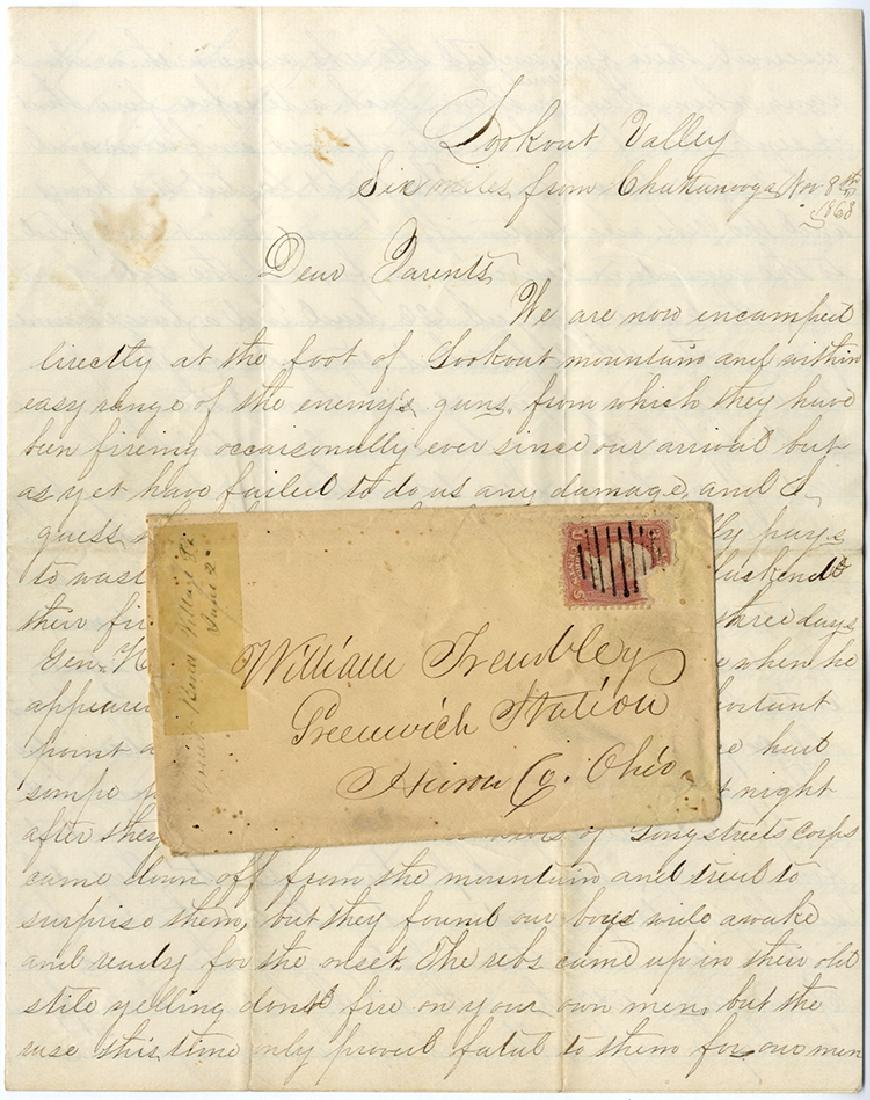 Lookout Valley
Six miles from Chattanooga Nov 8th
1863
Dear Parents
We are now encamped
directly at the foot of Lookout mountain and within
easy range of the enemy's guns. from which they have
bun fireing occaisonally ever since our arrival but
as yet have failed to do us any damage, and I
guess
pays
to wast
their fir
three days
Gen. H
when he
appeare
point a
hurt
night
after they
of Longstreets corps
came down off from the mountain and tried to
surprise them, but they found our boys wide awake
and ready for the onset. The rebs came up in their old
stile yelling dont fire on your own men, but the
ruse this time only proved fatal to them for our men
June 2
William Trembley
Greenwich Station
Huron Co. Ohio.